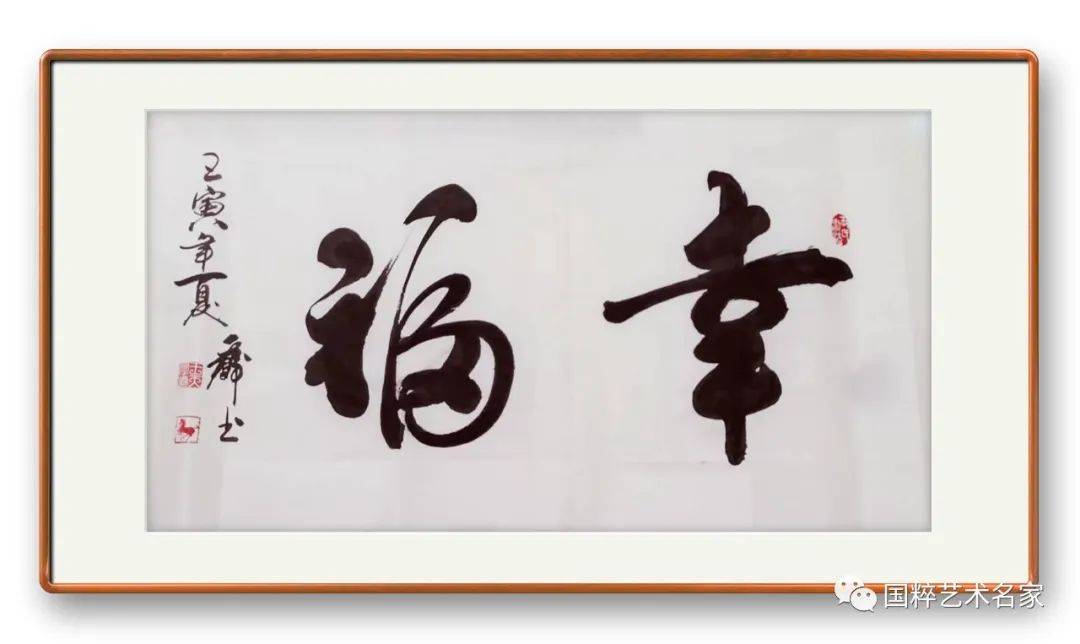 幸福
壬寅年夏
书
国粹艺术名家